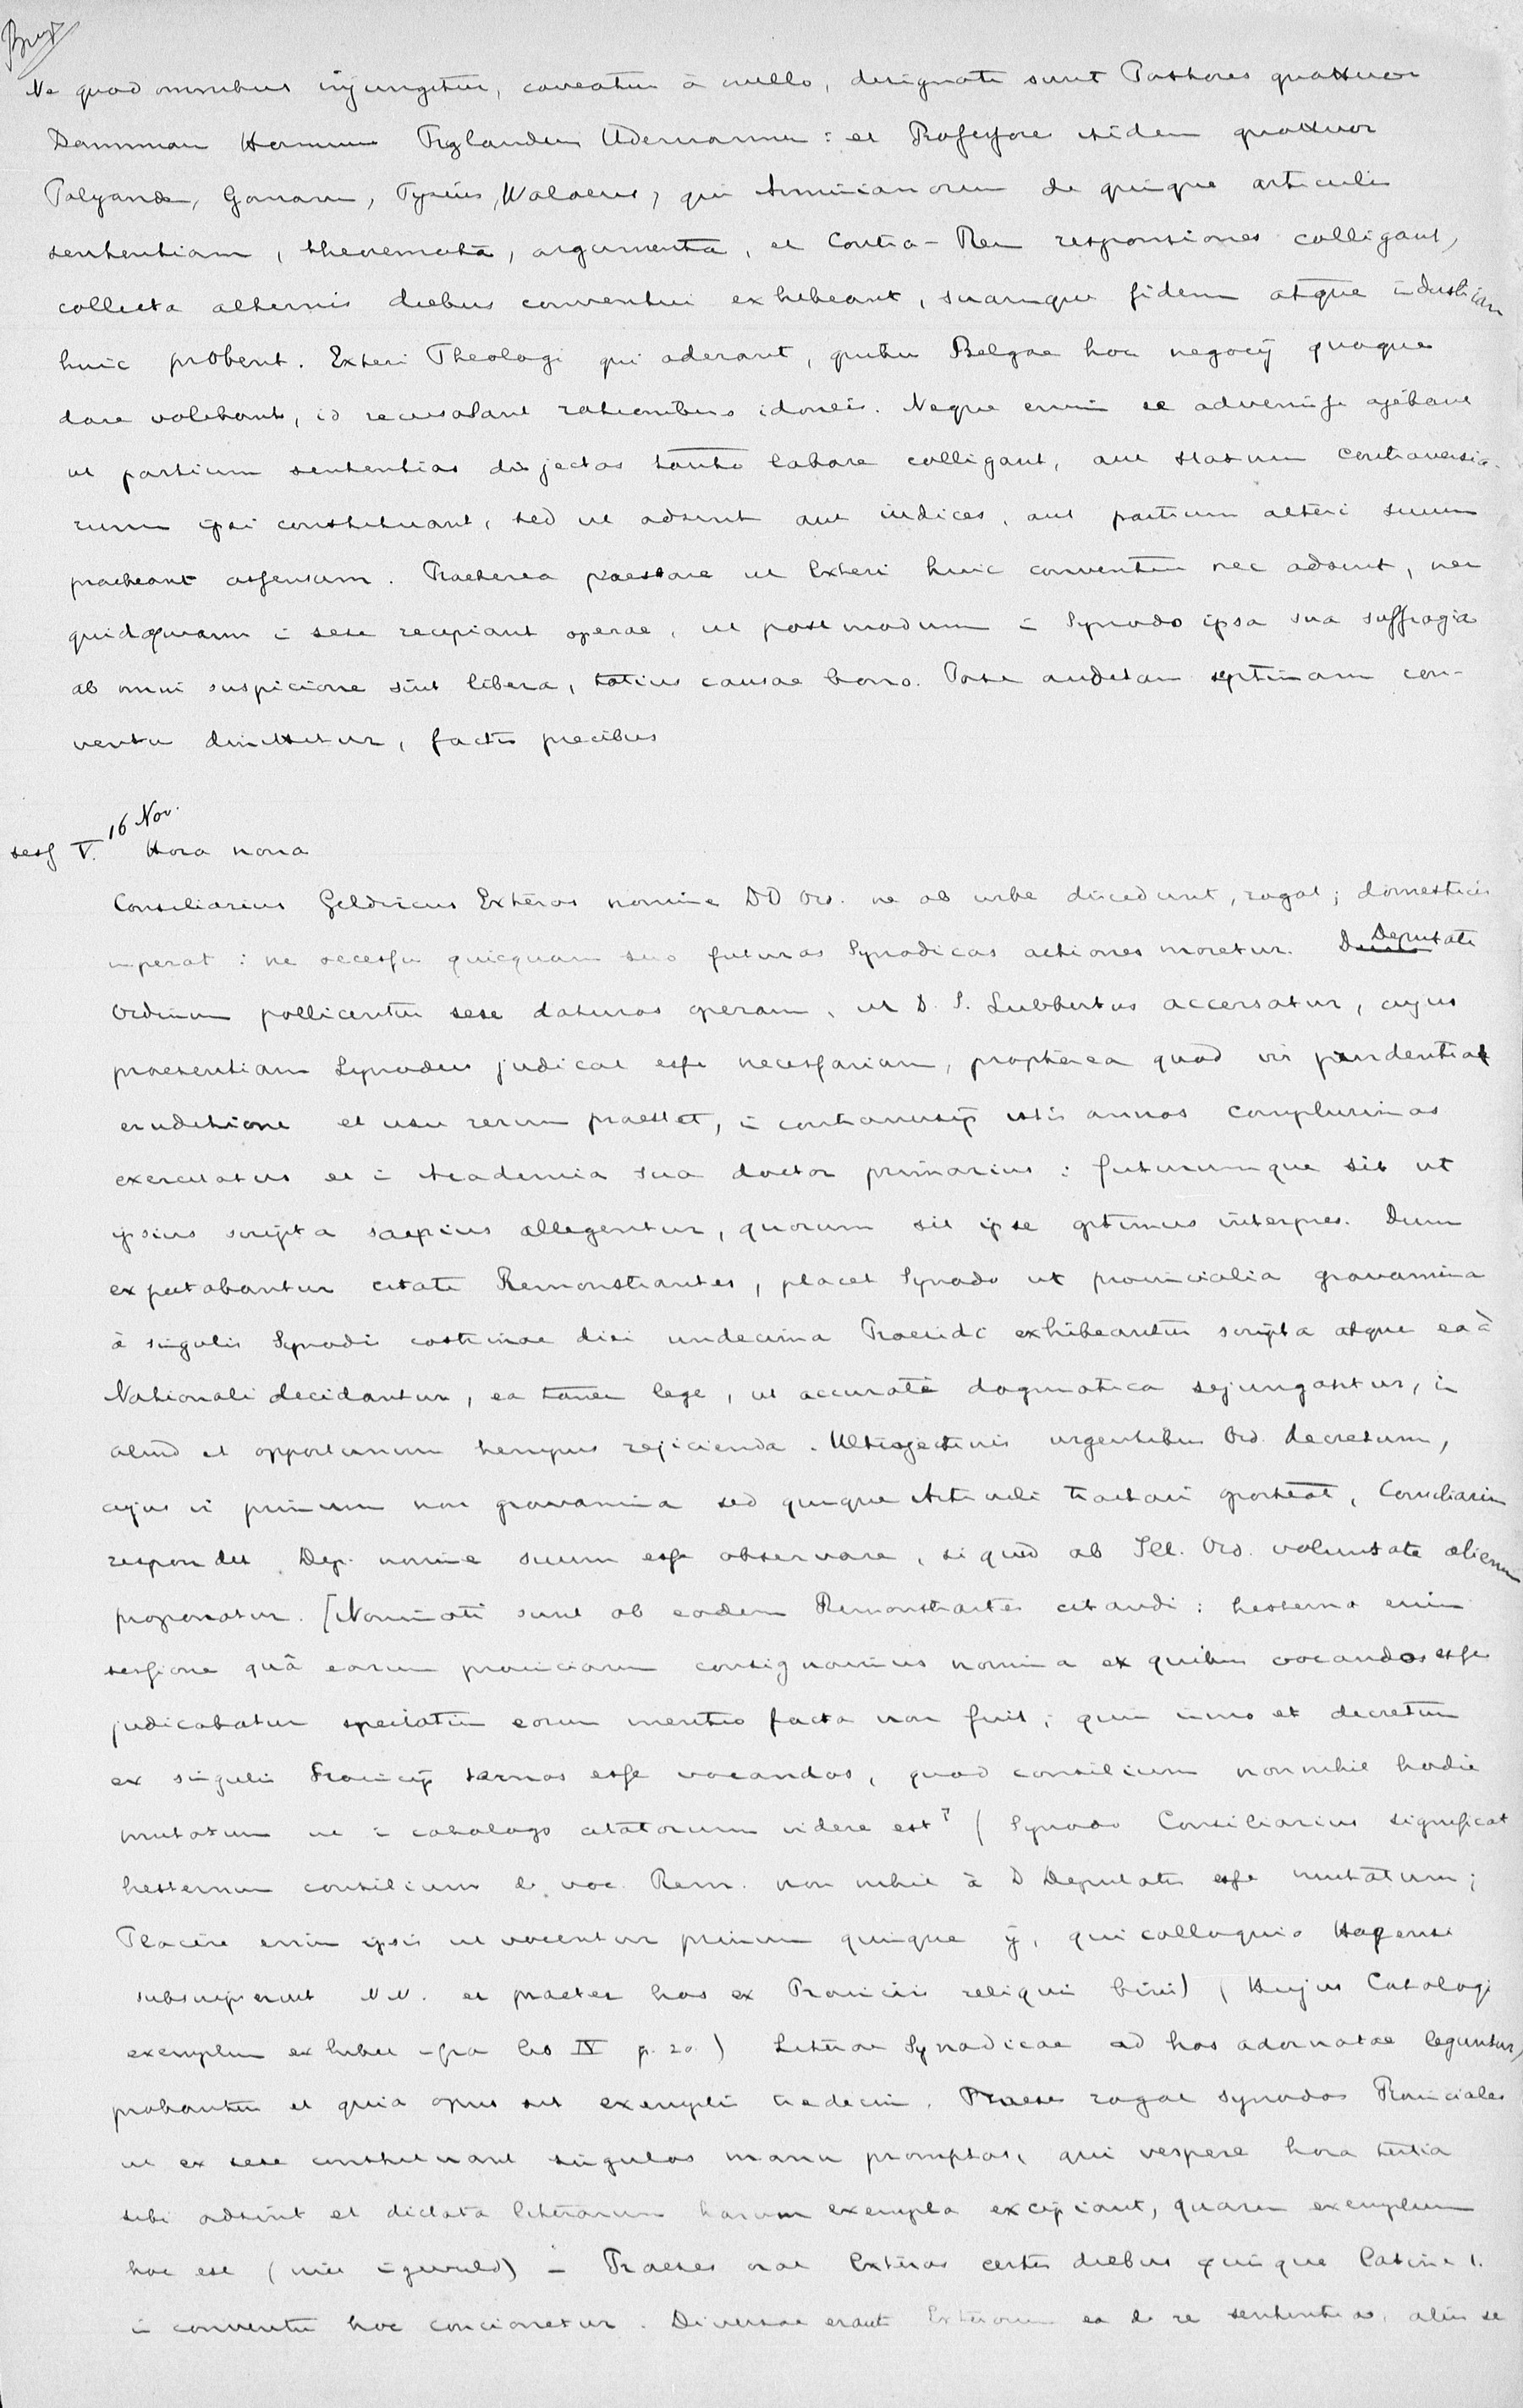 Ne quod omnibus injungitur, caveatur à nullo, designati sunt Pastores quattuor
Damman Hommius Triglandius Udemannus : et Professores itidem quattuor
Polyander, Gomarus, Tysius, Walaeus, qui Arminianorum de quinque articulis
sententiam, theoremata, argumenta, et Contra-Rem responsiones colligant,
collecta alternis diebus conventui exhibeant, suamque fidem atque industriam
huic probent. Exteri Theologi qui aderant, quibus Belgae hoc negocij quoque
dare volebant, id recusabant rationibus idoneis. Neque enim se advenisse ajebant
ut partium sententias disjectas tanto labore colligant, aut statum controversia-
rum ipsi constituant, sed ut adsint aut iudices, aut partium alteri suum
praebeant assensum. Praeterea praestare ut Exteri huic conventui nec adsint, nec
quidquam i sese recipiant operae, ut postmodum i Synodo ipsa sua suffragia
ab omni suspicione sint libera, totius causae bono. Post auditam septimam con-
ventu dimittitur, factis precibus
16 Nov.
sess V. Hora nona
Consiliarius Geldricus Exteros nomine DD Ord. ne ab urbe discedunt, rogat; domesticis
imperat : ne secessu quicquam suo futuras Synodicas actiones moretur. Deputati
Ordinum pollicentur sese daturos operam, ut D. S. Lubbertus accersatur, cujus
praesentiam Synodus judicat esse necessariam, propterea quod vir prudentia
eruditione et usu rerum praestet, i controversijs istis annos complurimos
exercitatus et i Academia sua doctor primarius : futurumque sit ut
ipsius scripta saepius allegentur, quorum sit ipse optimus interpres. Dum
expectabantur citati Remonstrantes, placet Synodo ut provincialia gravamina
à singulis Synodi crastinae diei undecima Praesidi exhibeantur scripta atque ea à
Nationali decidantur, ea tamen lege, ut accurate dogmatica sejungantur, in
aliud et opportunum tempus rejicienda. Ultrajectinis urgentibus Ord. decretum,
cujus vi primum non gravamina sed quinque Articuli tractari oporteat, Consiliarius
respondet Dep. nomine suum esse observare, si quid ab Ill. Ord. voluntate alienum
proponatur. [Nominati sunt ab eodem Remonstrantes citandi : hesterna enim
sessione quâ earum provinciarum consignavimus nomina ex quibus vocandos esse
judicabatur speciatim eorum mentio facta non fuit; quin immo et decretum
ex singulis Provincijs ternos esse vocandos, quod consilium nonnihil hodie
mutatum ut i catalogo citatorum videre est] ( Synodo Consiliarius significat
hesternum consilium de voc. Rem. non nihil à D Deputatis esse mutatum;
Placere enim ipsis ut vocentur primum quinque ij, qui colloquio Hagensi
subscripserunt N.N. et praeter hos ex Provincijs reliquis bini) (Hujus Catalogi
exemplum exhibet IV p. 20.) Literae Synodicae ad hos adornatae leguntur,
probantur et quia opus sit exemplis tredecim, Praeses rogat synodos Provinciales
ut ex sese constituant singulos manu promptos, qui vespere hora tertia
sibi adsint et dictata literarum harum exempla excipiant, quarum exemplum
hoc est (niet ingevuld) - Praeses orat Exteros certis diebus quinque Latine 1.
i conventu hoc concionetur. Diversae erant Exterorum ea de re sententiae, alii se